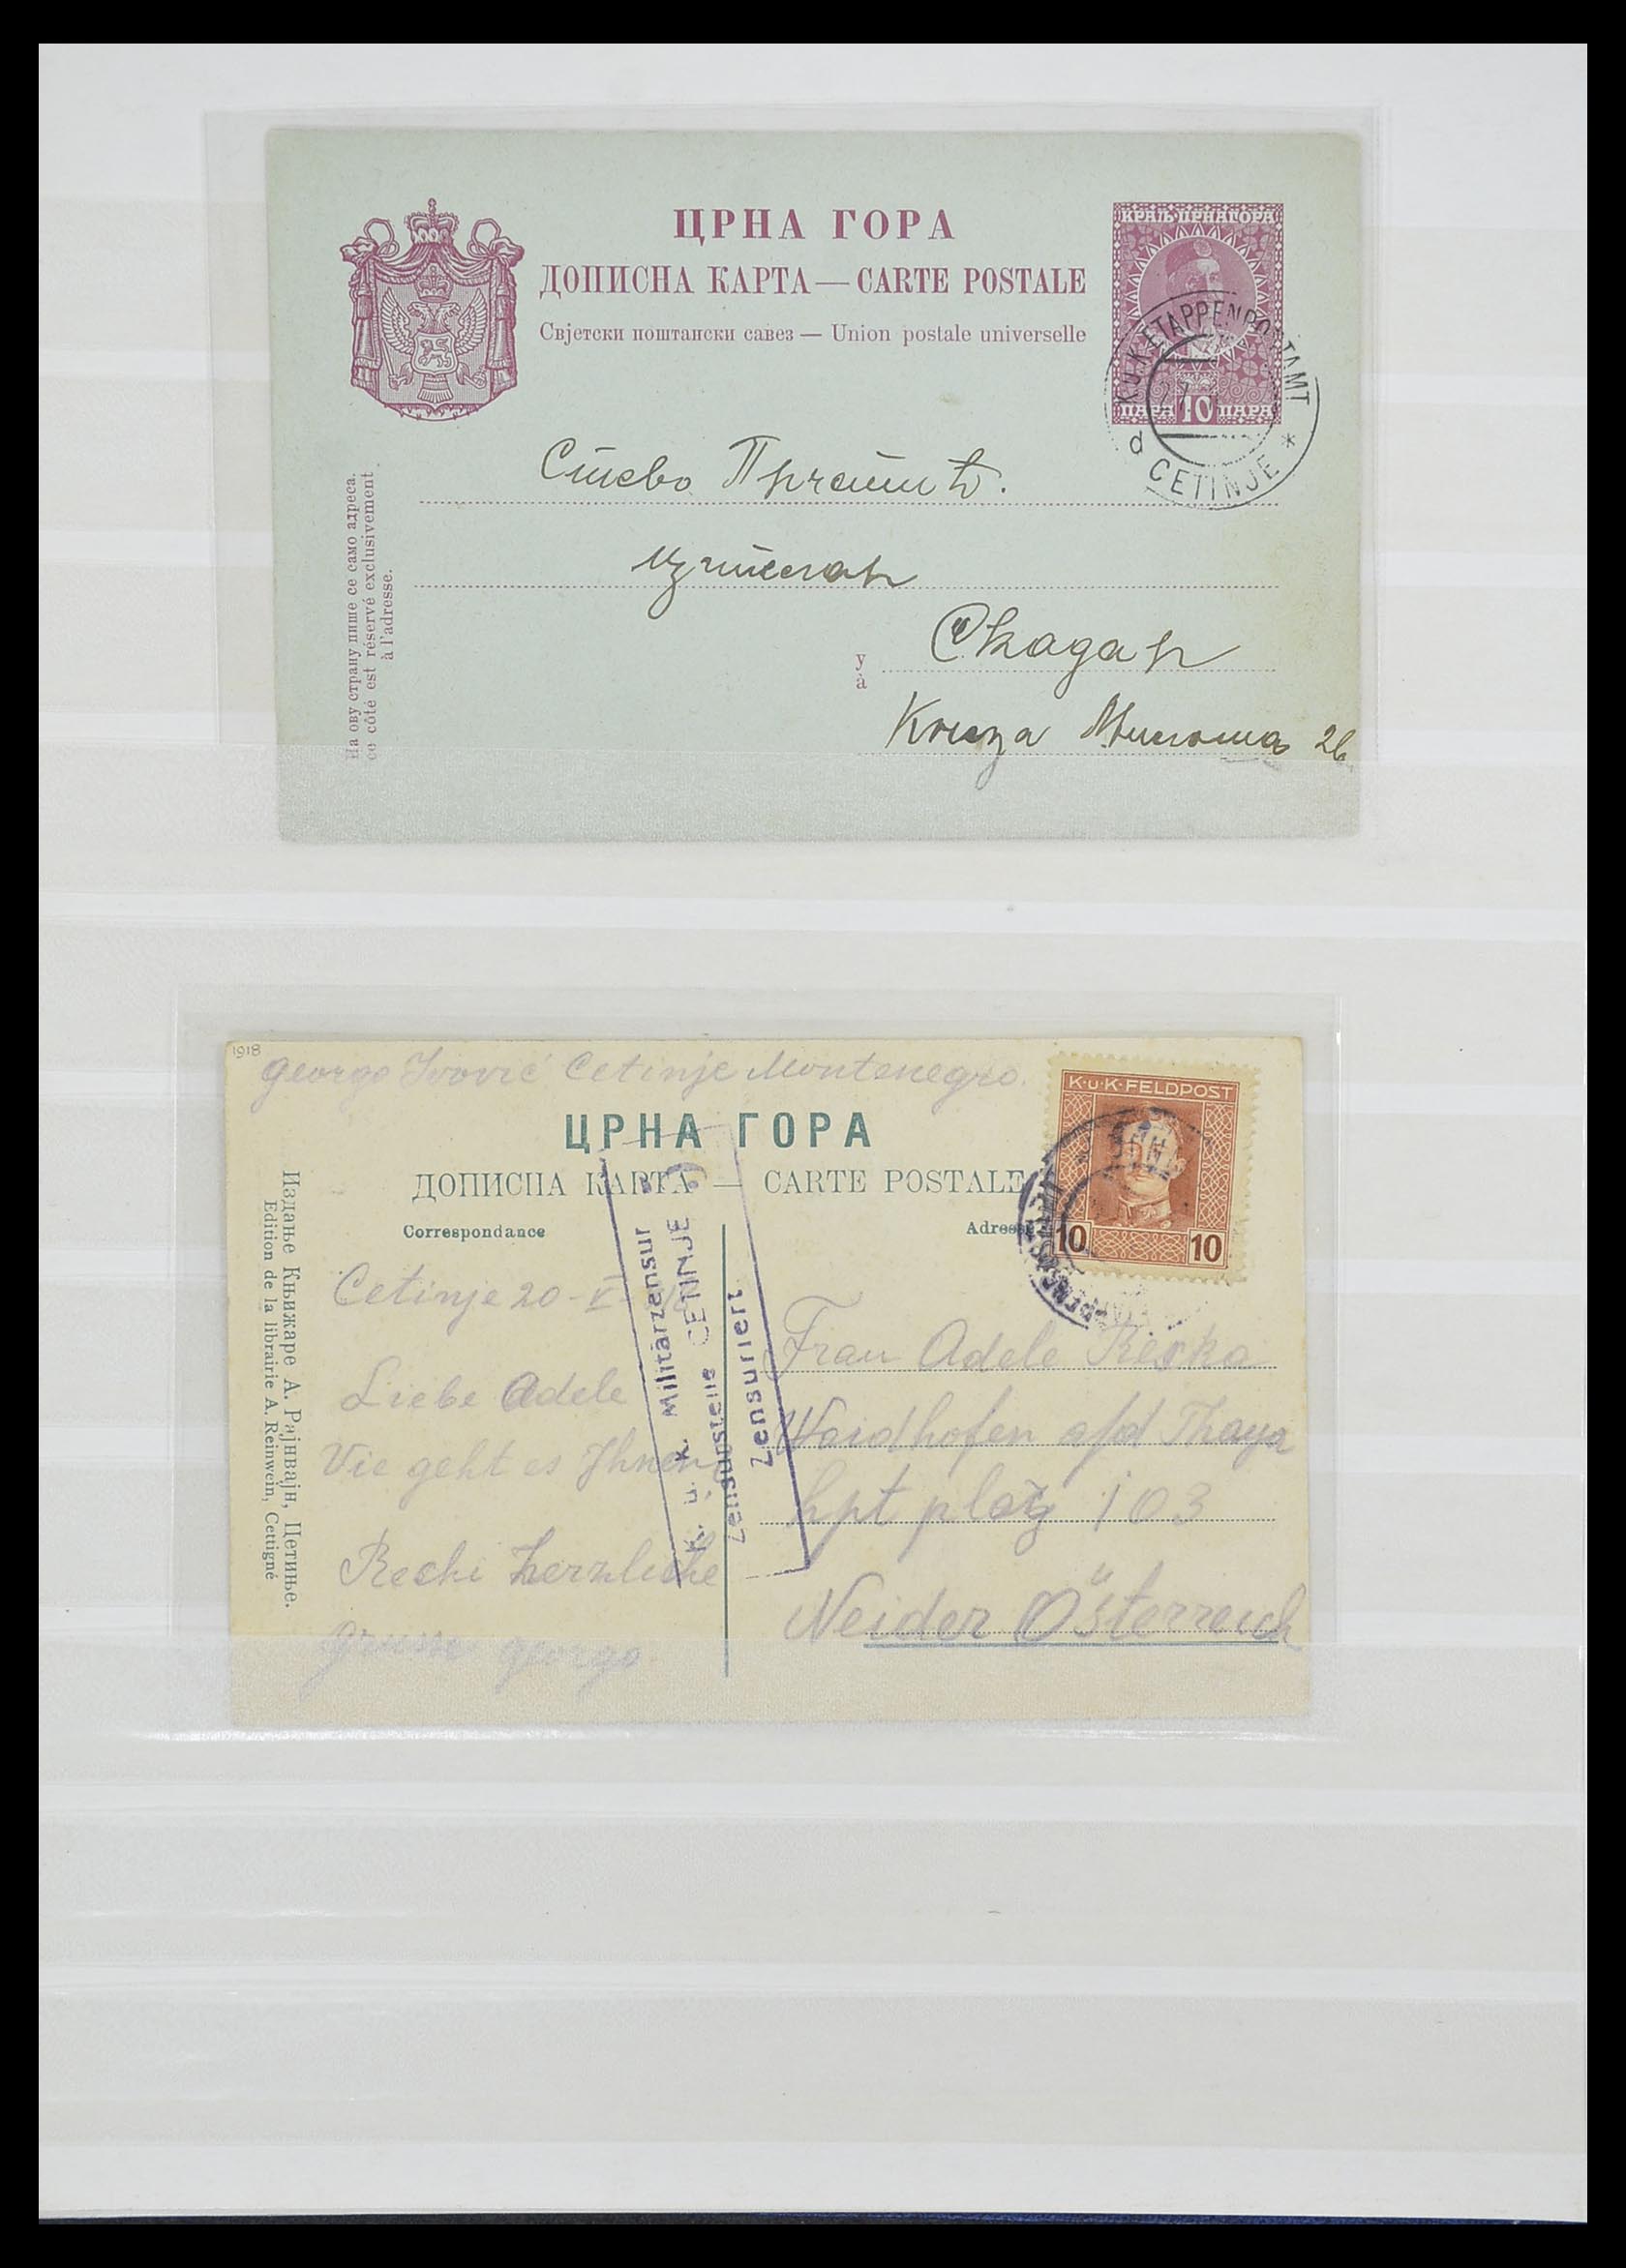 ЦРНА ГОРА
ДОПИСНА КАРТА — CARTE POSTALE
Свјетски поштански савез — Union postale universelle
КРАЉ. ЦРНАГОРА
ПАРА 10 ПАРА
K.u.K. ETAPPENPOSTAMT
d CETINJE *
Стево
Скадар
у
à
Књаза Милоша 26
На ову страну пише се само адреса.
ce côté est réservé exclusivement
à l'adresse.
1918
George Ivović Cetinje Montenegro.
ЦРНА ГОРА
ДОПИСНА КАРТА — CARTE POSTALE
Correspondance
Adresse
K·u·K·FELDPOST
10 10
Издање Књижаре А. Рајнвајн, Цетиње.
Edition de la librairie A. Reinwein, Cettigné
K. u. K. Militärzensur
Zensursstelle CETINJE
Zensuriert
Cetinje 20-V-
Liebe Adele
Vie geht es Ihnen
Rechi herzliche
George
Frau Adele Reska
Waidhofen a/d Thaya
hpt platz 103
Neider Österreich